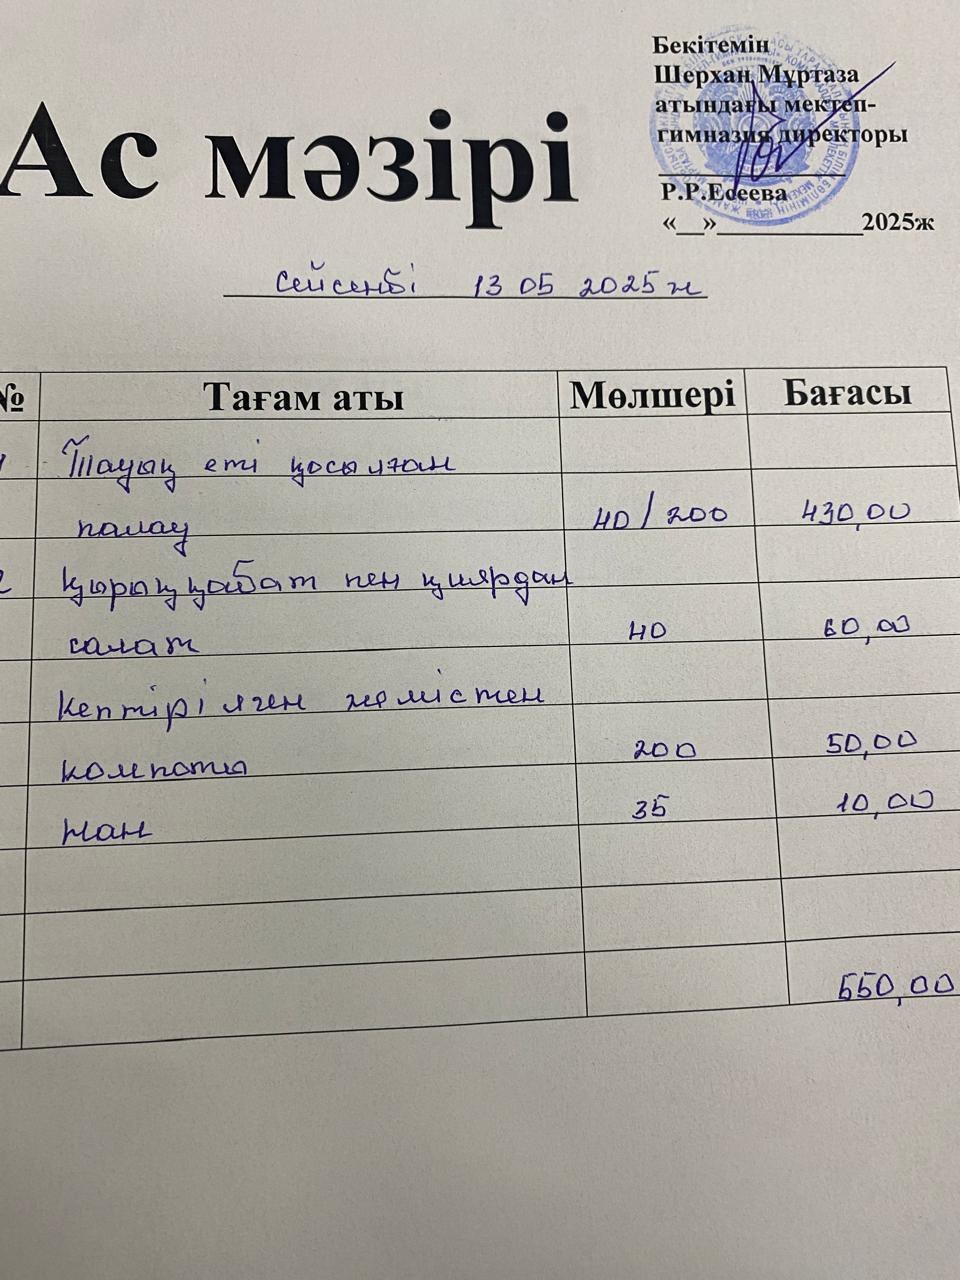 Бекітемін
Шерхан Мұртаза
атындағы мектеп-
гимназия директоры
Р.Р.Есеева
«__»____________2025ж
Ас мәзірі
Сейсенбі 13 05 2025 ж
№ Тағам аты Мөлшері Бағасы
1 Тауық еті қосылған
палау 40/200 430,00
2 Қырыққабат пен қиярдан
салат 40 60,00
Кептірілген жемістен
компоты 200 50,00
Нан 35 10,00
550,00